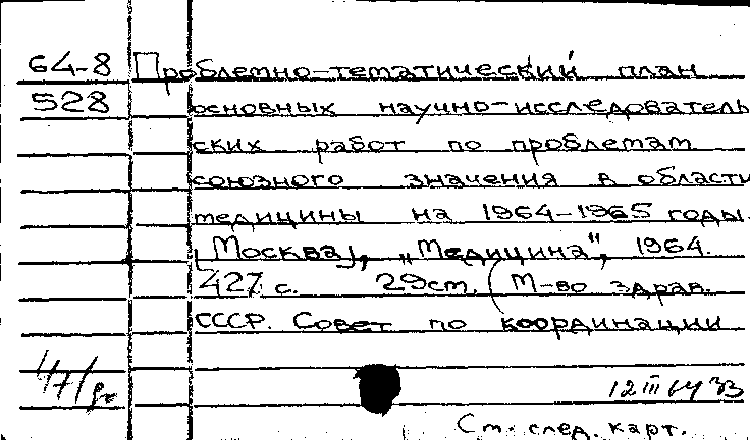 64-8 Проблемно-тематический план
528 основных научно-исследователь
ских работ по проблемам
союзного значения в области
медицины на 1964-1965 годы.
[Москва], „Медицина", 1964.
427 с. 29 см. (М-во здрав.
СССР. Совет по координации
12 III 64
См. след. карт.